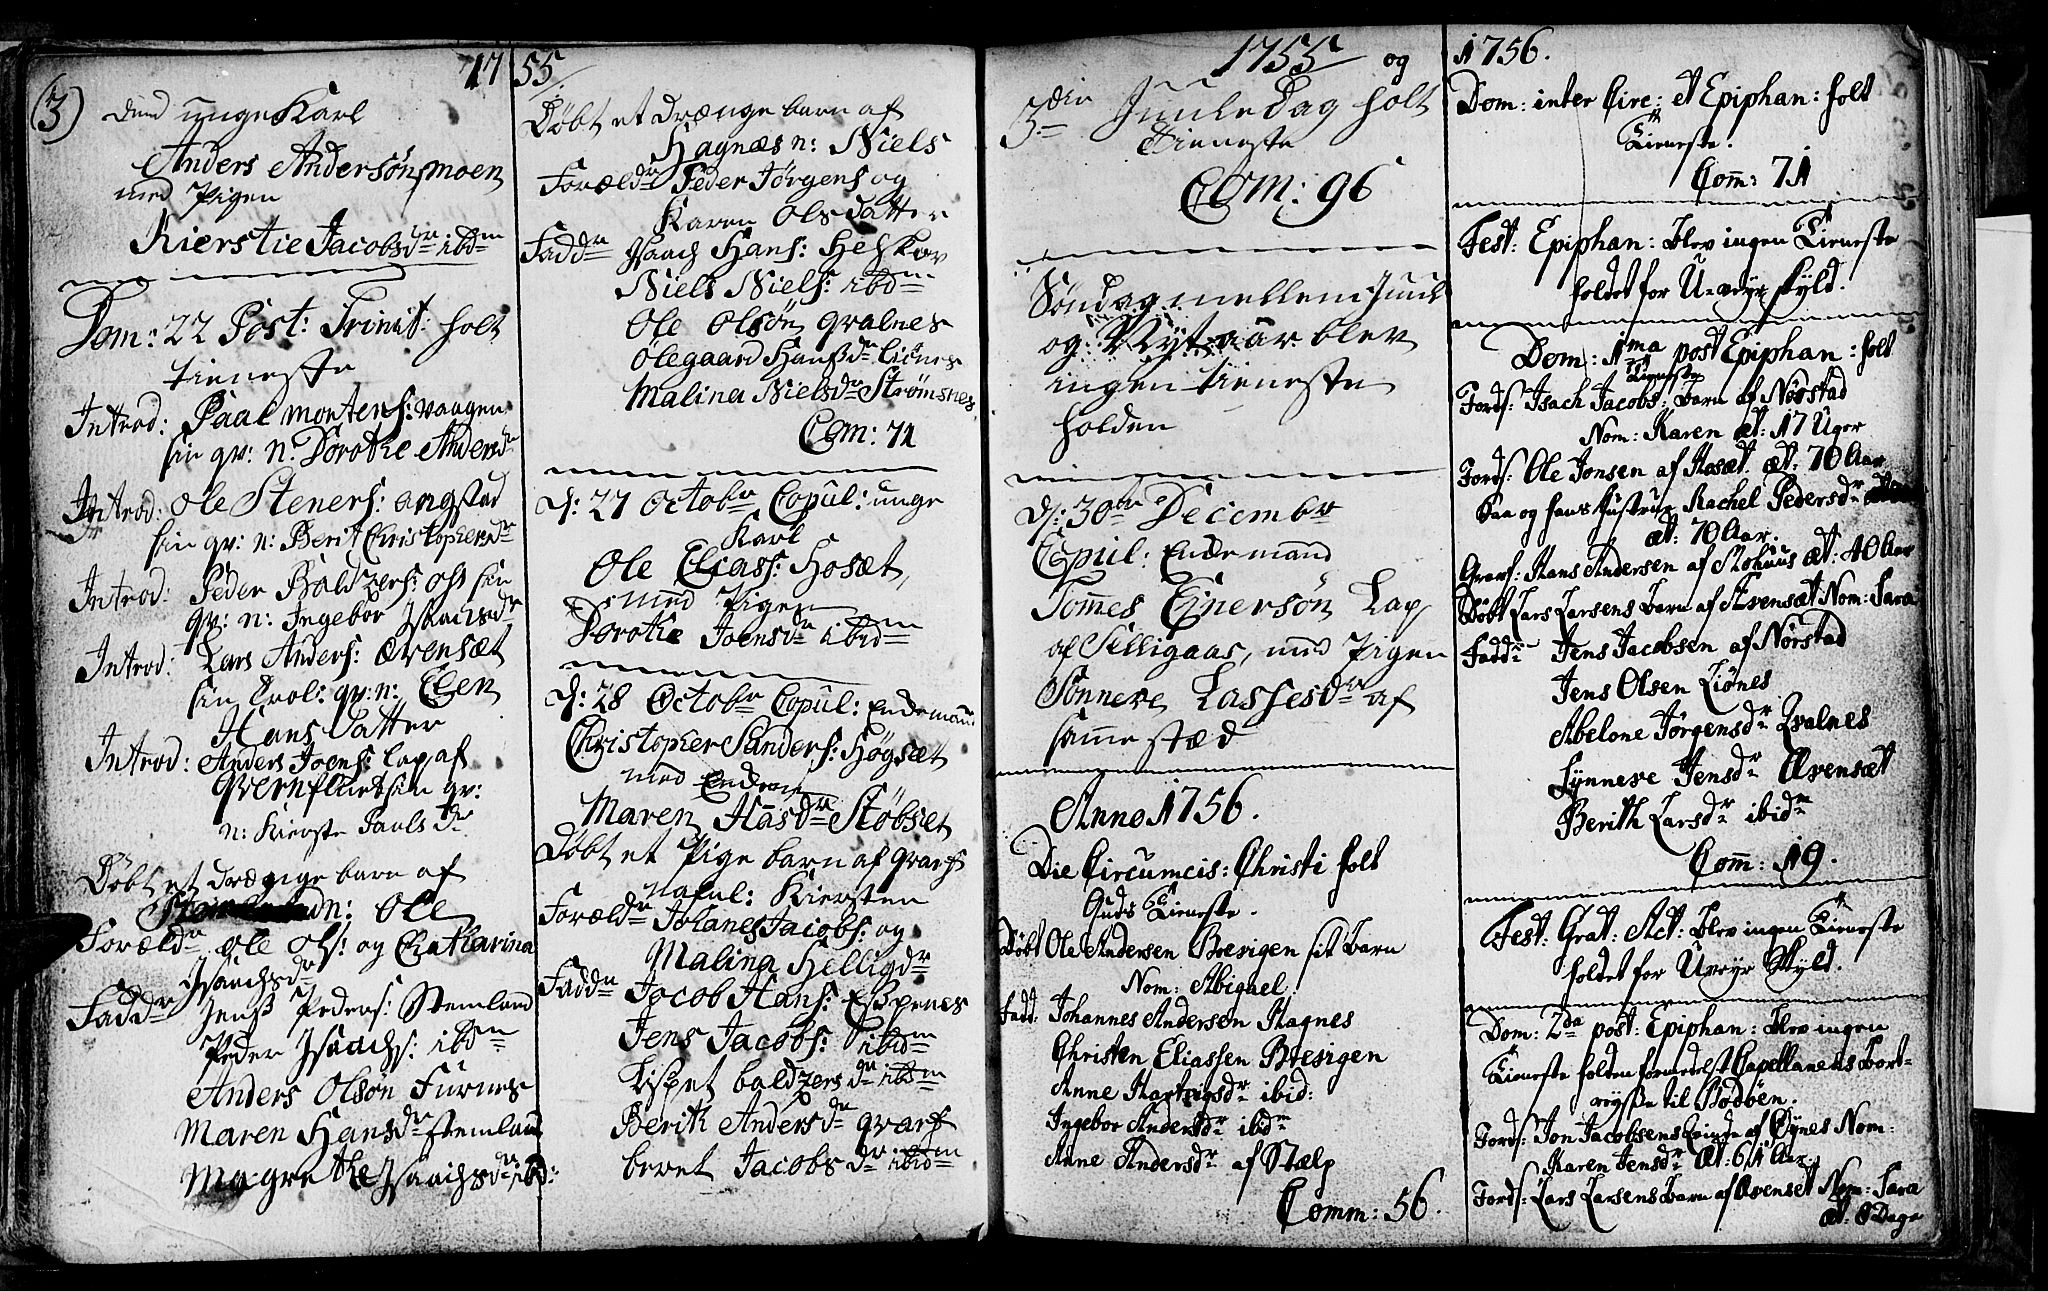 (3)
1755
dend unge Karl
Anders Andersøn moen
med Pigen
Kierstie Jacobsdr ibdm
Dom: 22 Post: Trinit: holt
tieneste
Introd: Paal Mortens: vaagen
sin qv: n: Dorothe Andersdr
Introd: Ole Steners: angstad
sin qv: n: Berit Christophersdr
Introd: Peder Baldzers: sin
qv: n: Ingebor Isaachsdr
Introd: Lars Anders: Ævensæt
sin qv: n: Elen
Hans Datter
Introd: Anders Joens: Lap af
sin qv:
n: Kierste Paulsdr
Døbt et drænge barn af
n: Ole
Forældn Ole Ols: og Chatharina
Isaachsdr
Faddn Jenss Peders: Stemland
Peder Isaachs: ibdm
Anders Olsøn Furnes
Maren Hansdr Stemland
Magrethe Isaachsdr ibd:
Døbt et drænge barn af
Hagnæs n: Niels
Forældn Peder Jørgens og
Karen Olsdatter
Faddn Isaach Hans: Helskov
Niels Niels: ibdm
Ole Olsøn qvalnes
Ølegaard Hansdr Liønes
Malina Nielsdr Strømsnes
Com: 74
d: 27 Octobr Copul: unge
Karl
Ole Elias: Hosæt,
med Pigen
Dorothe Joensdr ibidm
d: 28 Octobr Copul: Endemand
Christopher Sanders: Høgsæt
med Enden
Maren Hansdr Støbset
Døbt et Pige barn af qvarf
nafnl: Kiersten
Forældn Johanes Jacobs: og
Malina Helligdr
Faddn Jacob Hans: Espenæs
Jens Jacobs: ibidm
Lispet baldzersdr ibdm
Berith Andersdr qvarf
beret Jacobsdr ibidm
1755 og
3die Juuledag holt
Tieneste
Com: 96
Søndag mellem Juul
og Nyt aar blev
ingen tieneste
holden
d: 30te Decembr
Copul: Endemand
Tommes Ejnersøn Lap
af Selligaas, med Pigen
Sonneve Lassesdr af
samme stæd
Anno 1756.
Die Circumcis: Christi holt
Guds Tieneste.
Døbt Ole Andersen Breivigen sit Barn
Nom: Abigael.
Fadd: Johannes Andersen Hagnes
Christen Eliassen Breivigen
Anne Hartvigsdr ibid:
Ingebor Andersdr ibidm
Anne Andersdr af Stælp
Comm: 56.
1756.
Dom: inter Circ: et Epiphan: holt
Tieneste.
Comm: 71
Fest: Epiphan: blev ingen Tieneste
holdet for U-veyr skyld.
Dom: 1ma post Epiphan: holt
Tieneste
Jords: Isach Jacobs: barn af Nørstad
Nom: Karen æt: 17 Uger
Jords: Ole Jonsen af Hosæt. æt: 70 Aar
Saa og hans hustrue Rachel Pedersdr
æt: 70 Aar.
Grafs: Hans Andersen af Nohuus æt: 40 Aar
Døbt Lars Larsens barn af Ævensæt Nom: Sara
Faddr Jens Jacobsen af Nørstad
Jens Olsen Liønes
Abelone Jørgensdr Qvalnes
Synneve Jensdr Ævensæt
Berith Larsdr ibidm
Comm: 19.
Fest: Grat: Act: blev ingen Tieneste
holdet for Uveyr Skyld.
Dom: 2da post: Epiphan: blev ingen
Tieneste holden formedelst Capellanens bort-
reysse til Bodøen.
Jords: Jon Jacobsens qvinde af Øynes Nom:
Karen Jensdr æt: 61 Aar.
Jords: Lars Larsens barn af Ævenset Nom: Sara
æt: 8 Dage